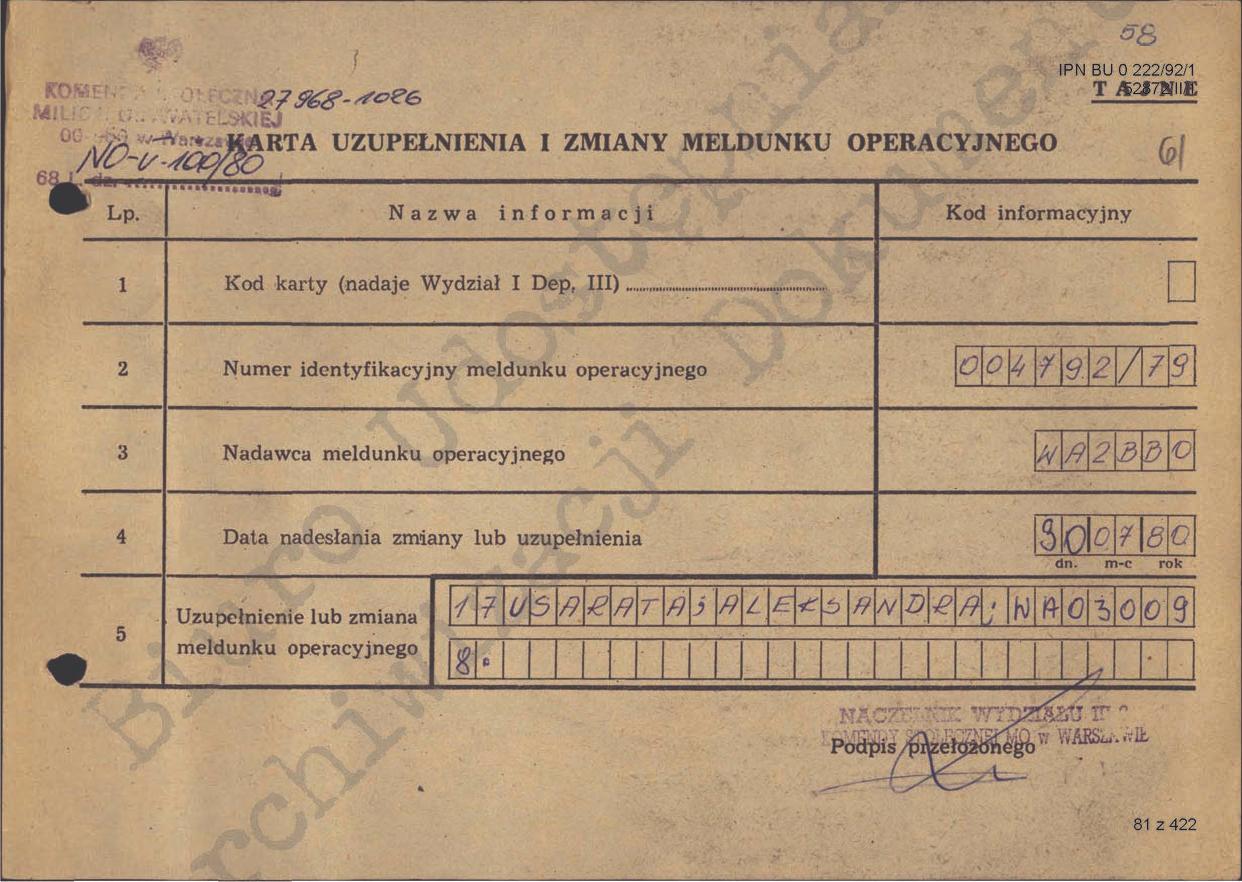 58
IPN BU 0 222/92/1
TAJNE
KOMENDA STOŁECZNA
27968-1026
MILICJI OBYWATELSKIEJ
w Warszawie
KARTA UZUPEŁNIENIA I ZMIANY MELDUNKU OPERACYJNEGO
61
NO-V-100/80
68 L. dz.
Lp. Nazwa informacji Kod informacyjny
1 Kod karty (nadaje Wydział I Dep. III)
2 Numer identyfikacyjny meldunku operacyjnego 004792/79
3 Nadawca meldunku operacyjnego WA2BB0
4 Data nadesłania zmiany lub uzupełnienia 300780
dn. m-c rok
5 Uzupełnienie lub zmiana meldunku operacyjnego 17USARATAJALEKSANDRA; WA03009
8.
NACZELNIK WYDZIAŁU
KOMENDY STOŁECZNEJ MO w WARSZAWIE
Podpis przełożonego
81 z 422
Biuro Udostępniania
Archiwizacji Dokumentów